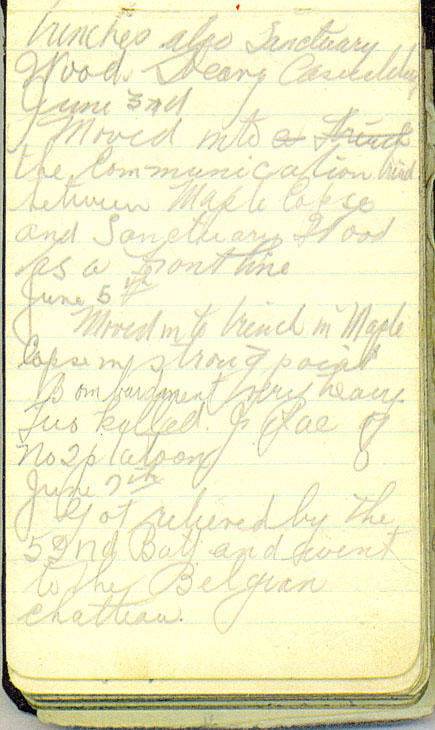 trinches also Sanctuary
Wood. Heavy Casuelday
June 3rd
Moved into a Trinch
the Communication trinch
between Maple Copse
and Sanctuary Wood
as a frontline
June 5th
Moved into trinch in Maple
Copse in strong point
Bombardment very heavy
Two killed. J. Rae of
No 2 platoon
June 7th
Got relieved by the
52nd Batt and went
to the Belgian
chatteau.